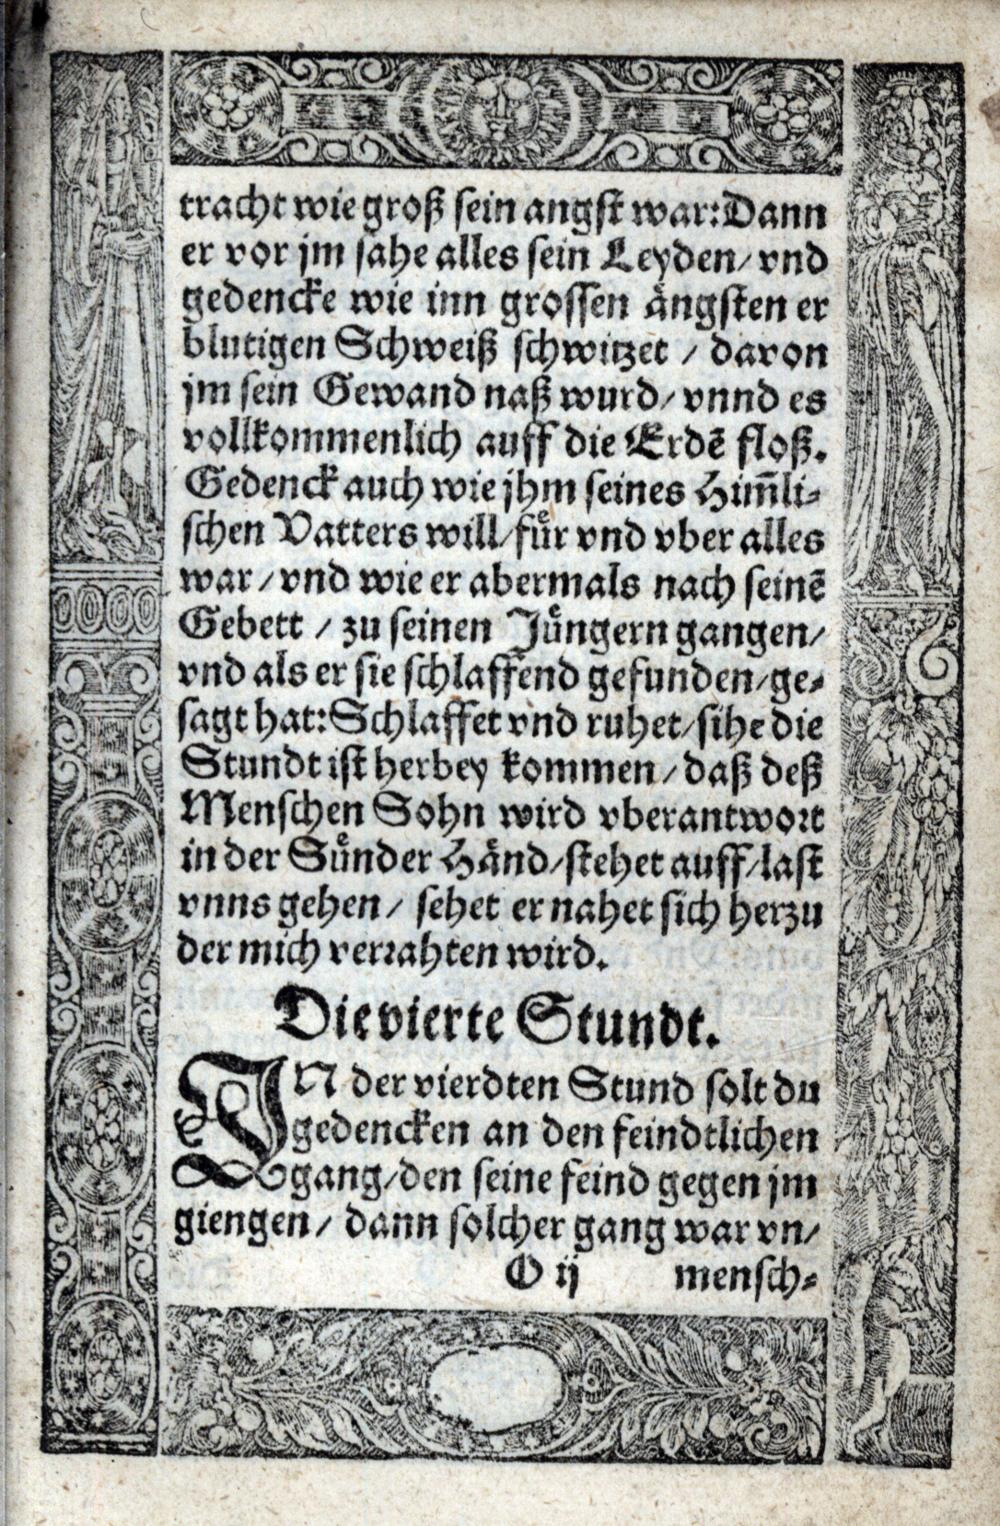 tracht wie groß sein angst war: Dann
er vor jm sahe alles sein Leyden/ vnd
gedencke wie inn grossen aͤngsten er
blutigen Schweiß schwitzet / davon
jm sein Gewand naß wurd/ vnnd es
vollkommenlich auff die Erdẽ floß.
Gedenck auch wie jhm seines Him̃li⸗
schen Vatters will/ fuͤr vnd vber alles
war / vnd wie er abermals nach seinẽ
Gebett / zu seinen Juͤngern gangen/
vnd als er sie schlaffend gefunden/ ge⸗
sagt hat: Schlaffet vnd ruhet/ sihe die
Stundt ist herbey kommen / daß deß
Menschen Sohn wird vberantwort
in der Suͤnder Haͤnd/ stehet auff/ last
vnns gehen/ sehet er nahet sich herzu
der mich verrahten wird.
Die vierte Stundt.
IN der vierdten Stund solt du
gedencken an den feindtlichen
gang/ den seine feind gegen jm
giengen/ dann solcher gang war vn/
O ij mensch⸗